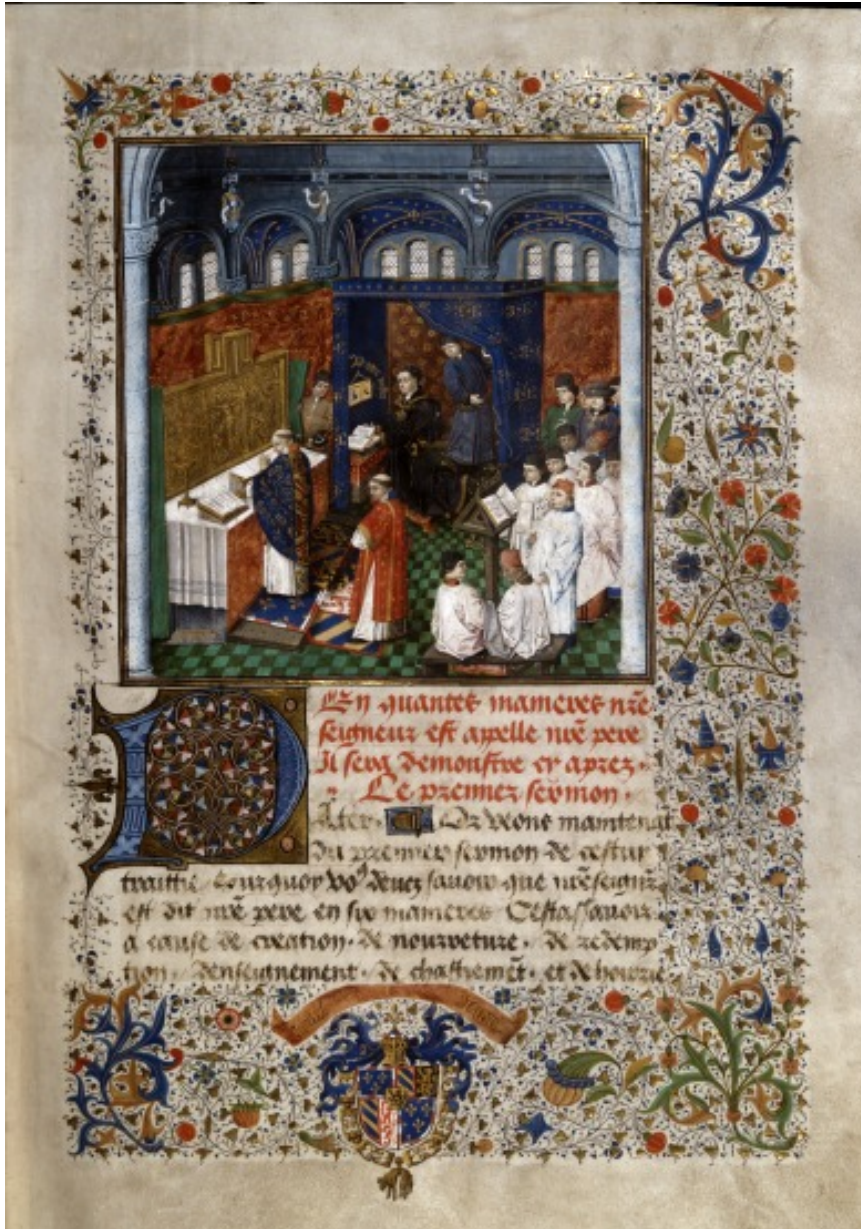 En quantes manieres nrẽ
seigneur est apelle nrẽ pere
Il sera demonstre cy aprez.
Le premier sermon.
Pater. Or veons maintenãt
du premier sermon de cestui
traittie. Pourquoy voꝰ devez savoir que nrẽ seignr̃
est dit nrẽ pere en six manieres. Cestassavoir
a cause de creation. de nourreture. de redemp
tion. denseignement. de chastiemẽt. et de